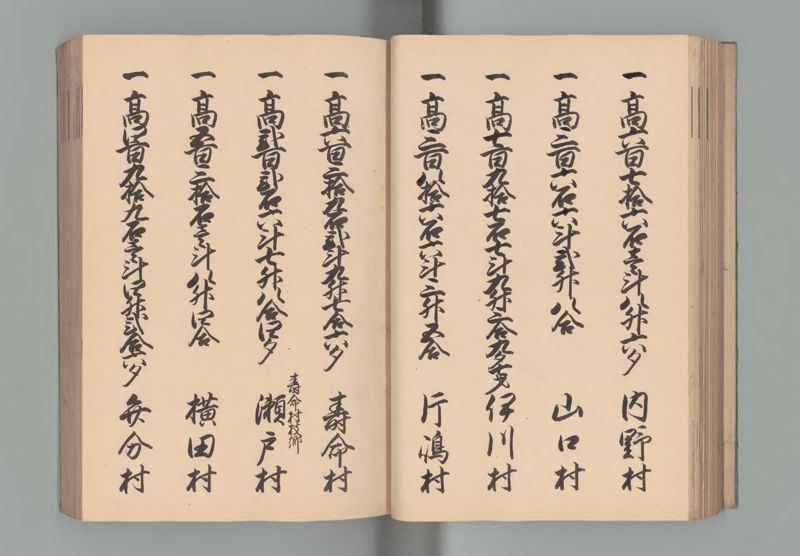 一高六百七拾六石壱斗八升六夕 内野村
一高三百六石六斗弐升八合 山口村
一高七百九拾七石七斗九升三合九夕壱才 伊川村
一高三百八拾六石六斗三升五合 片嶋村
一高六百三拾九石弐斗九升七合六夕 壽命村
壽命村枝郷
一高弐百弐石六斗七升八合四夕 瀬戸村
一高五百三拾石壱斗八升四合 横田村
一高四百九拾九石壱斗四升弐合六夕 弁分村